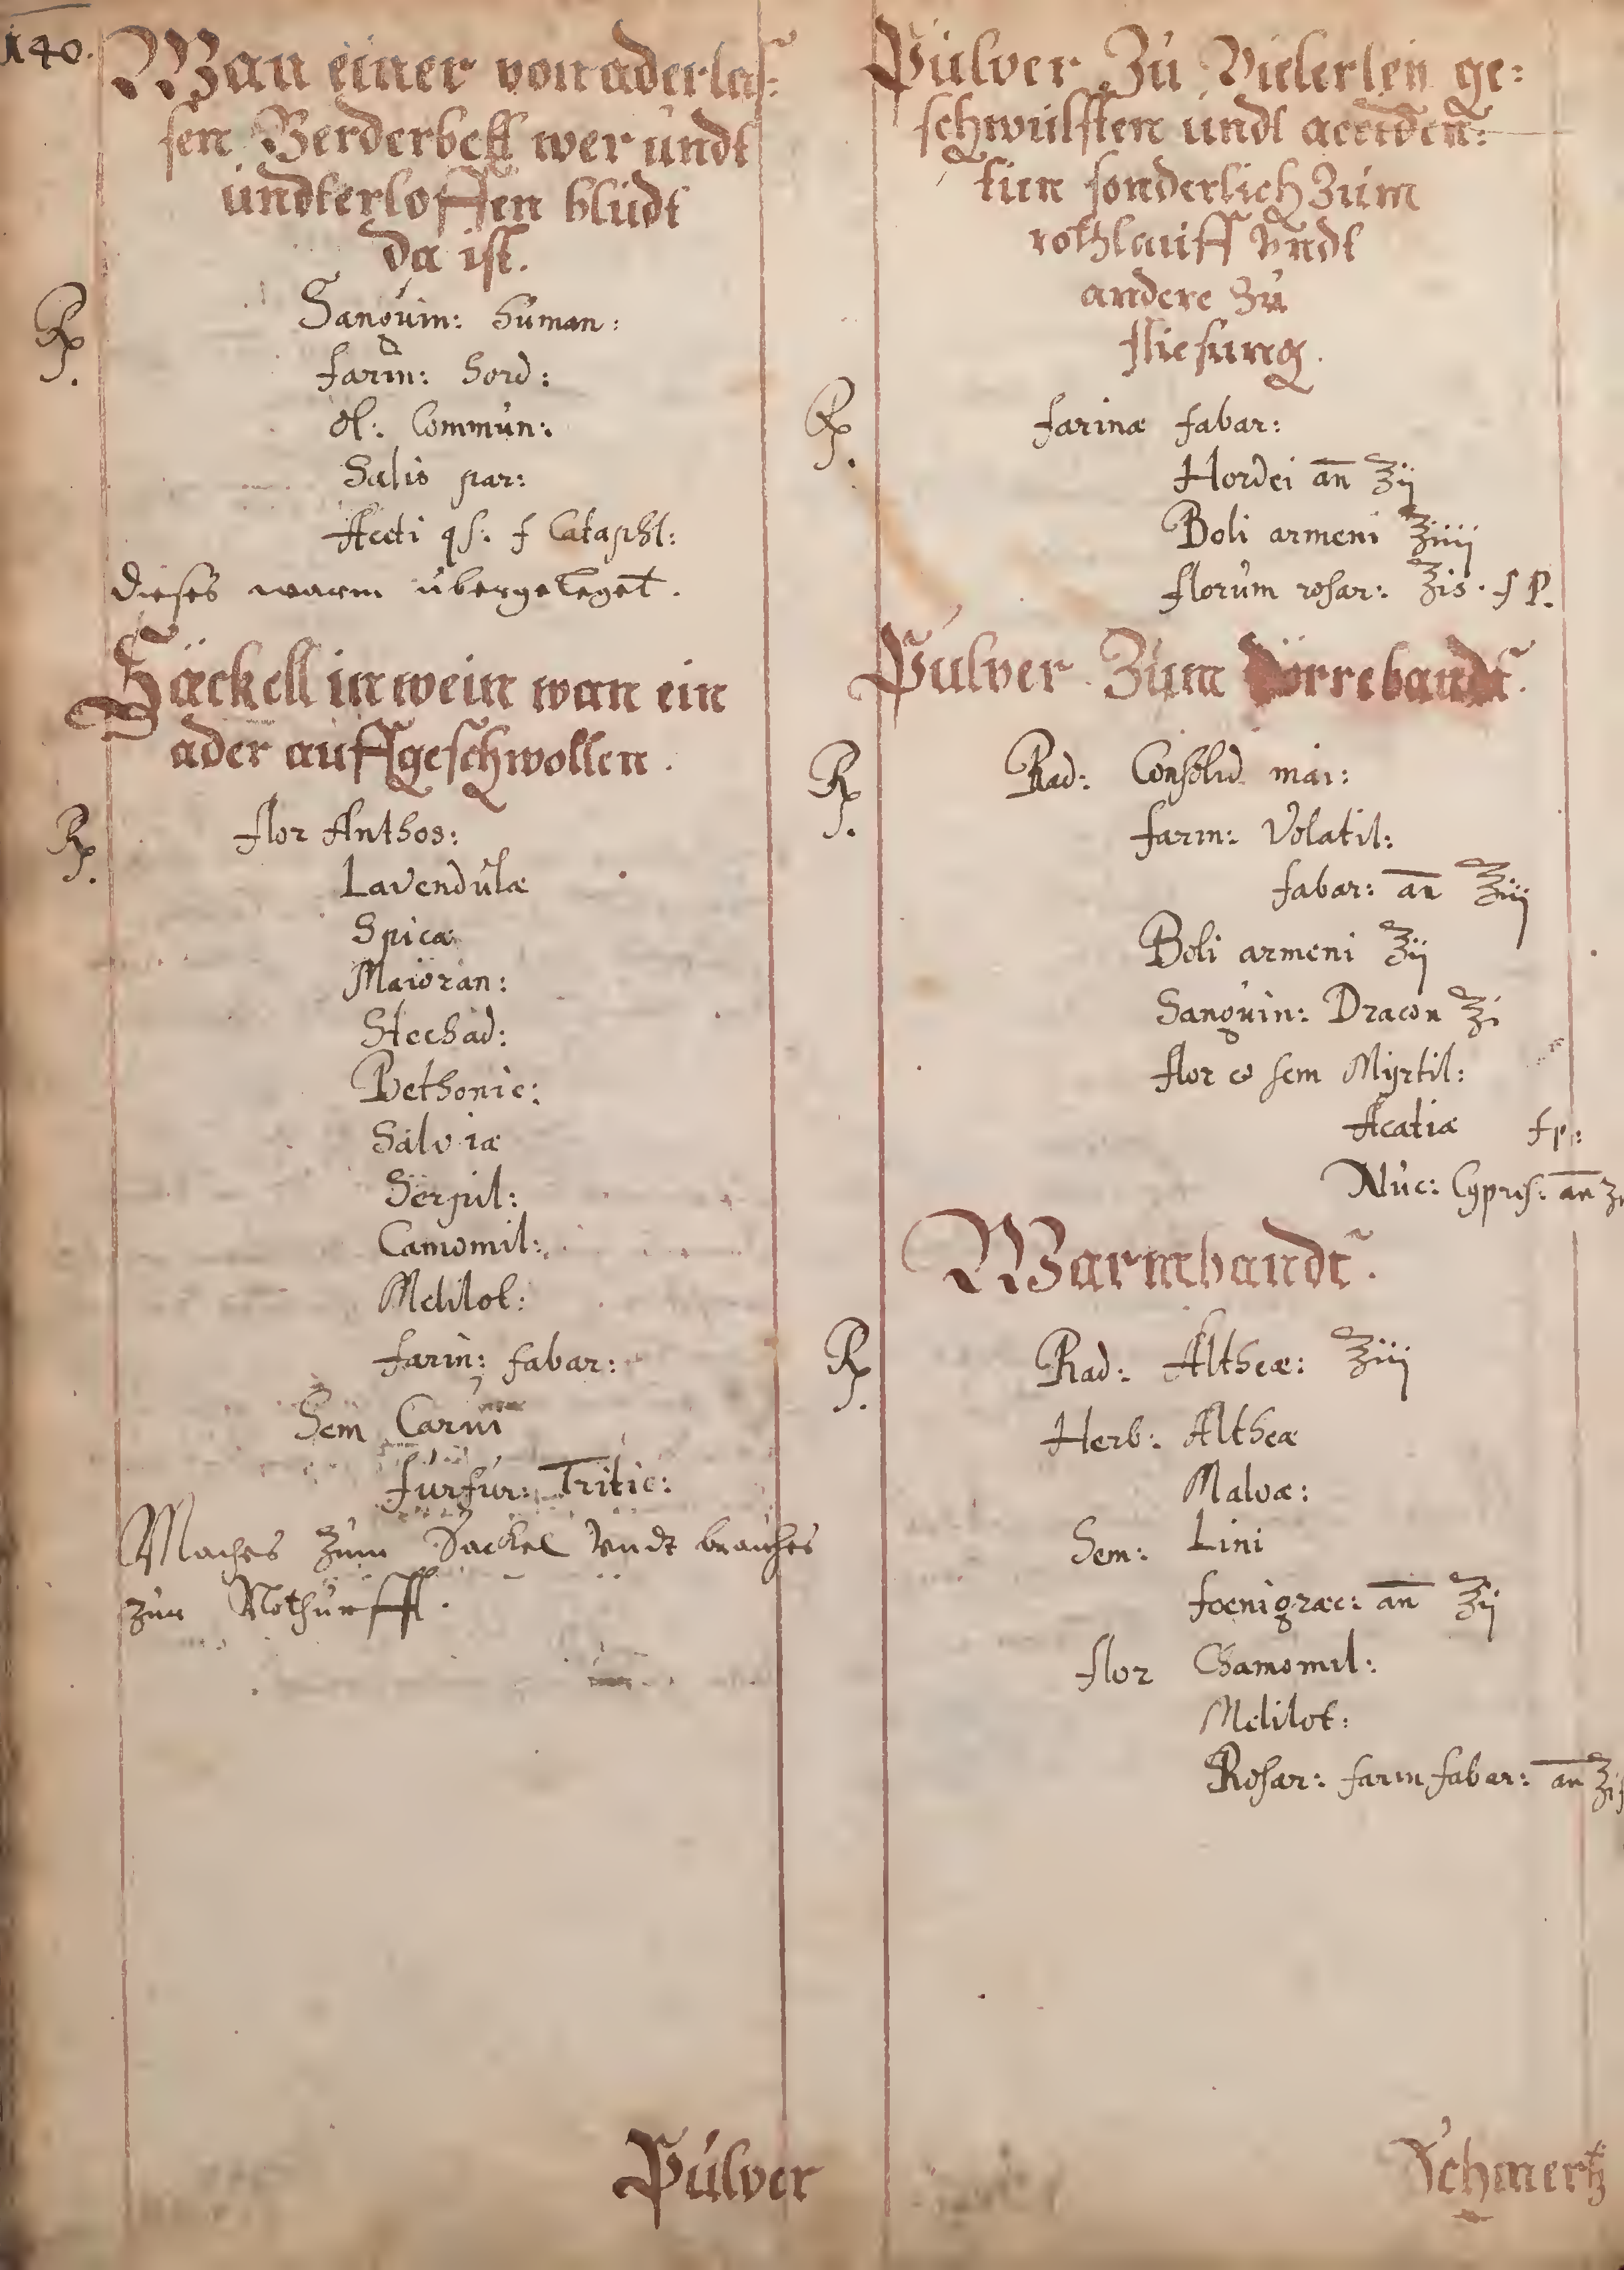 140.
Wan einer von aderlas=
sen Verderbett wer undt
undterloffen bludt
da ist.
Rp. Sanguin: human:
farin: hord:
ol: Commun:
Salis par:
Aceti qs: f Cataphl:
dieses warm übergeleget.
Säckell in wein wan ein
ader auffgeschwollen.
Rp. flor Anthos:
Lavendulæ
Spicæ
Maioran:
Stechad:
Bethonic:
Salviæ
Serpil:
Camomil:
Melilot:
farin: fabar:
Sem Carui
furfur: Tritic:
Maches zum Säckel Vndt brauches
zur Nothurfft.
Pulver
Pulver Zu Vielerley ge=
schwulsten undt acciden=
tien sonderlich Zum
rothlauff Vndt
andere Zu
fliesung.
Rp. farinæ fabar:
Hordei an ℥ij
Boli armeni ℥iiij
florum rosar: ℥is. f P.
Pulver Zum dörrebandt.
Rp. Rad: Consolid mai:
farin: Volatil:
fabar: an ℥iij
Boli armeni ℥ij
Sanguin: Dracon ℥i
flor & sem Myrtil:
Acatiæ fp:
Nuc: Cypris: an
Warmbandt.
Rp. Rad: Altheæ: ℥iij
Herb: Altheæ
Malvæ:
Sem: Lini
foenigræc: an ℥ij
flor Chamomil:
Melilot:
Rosar: farin fabar: an
Schmertz